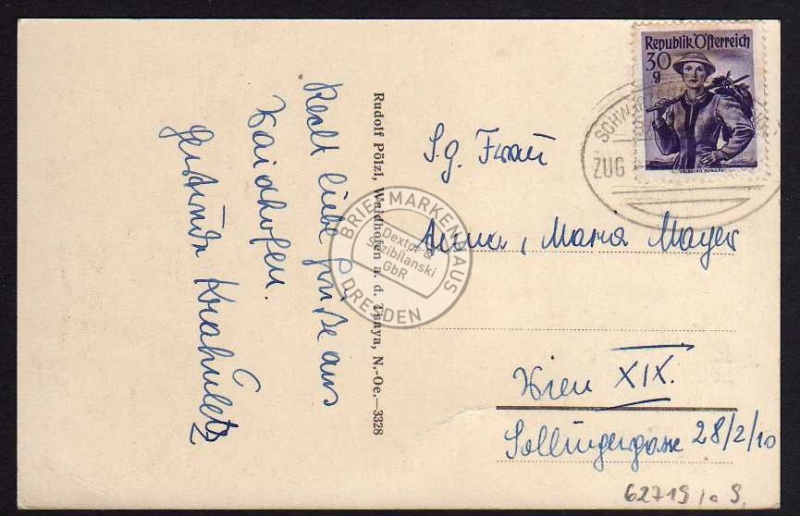 Recht liebe Grüße aus
Waidhofen.
Gertrude Krahuletz
Rudolf Pölzl, Waidhofen a. d. Thaya, N.-Oe.—3328
Republik Österreich
30
g
SCHW
ZUG
S. g. Frau
Anna, Maria Mayer
Wien XIX.
Sollingergasse 28/2/10
62719
BRIEFMARKENHAUS
Dextor &
Sezibilanski
GbR
DRESDEN